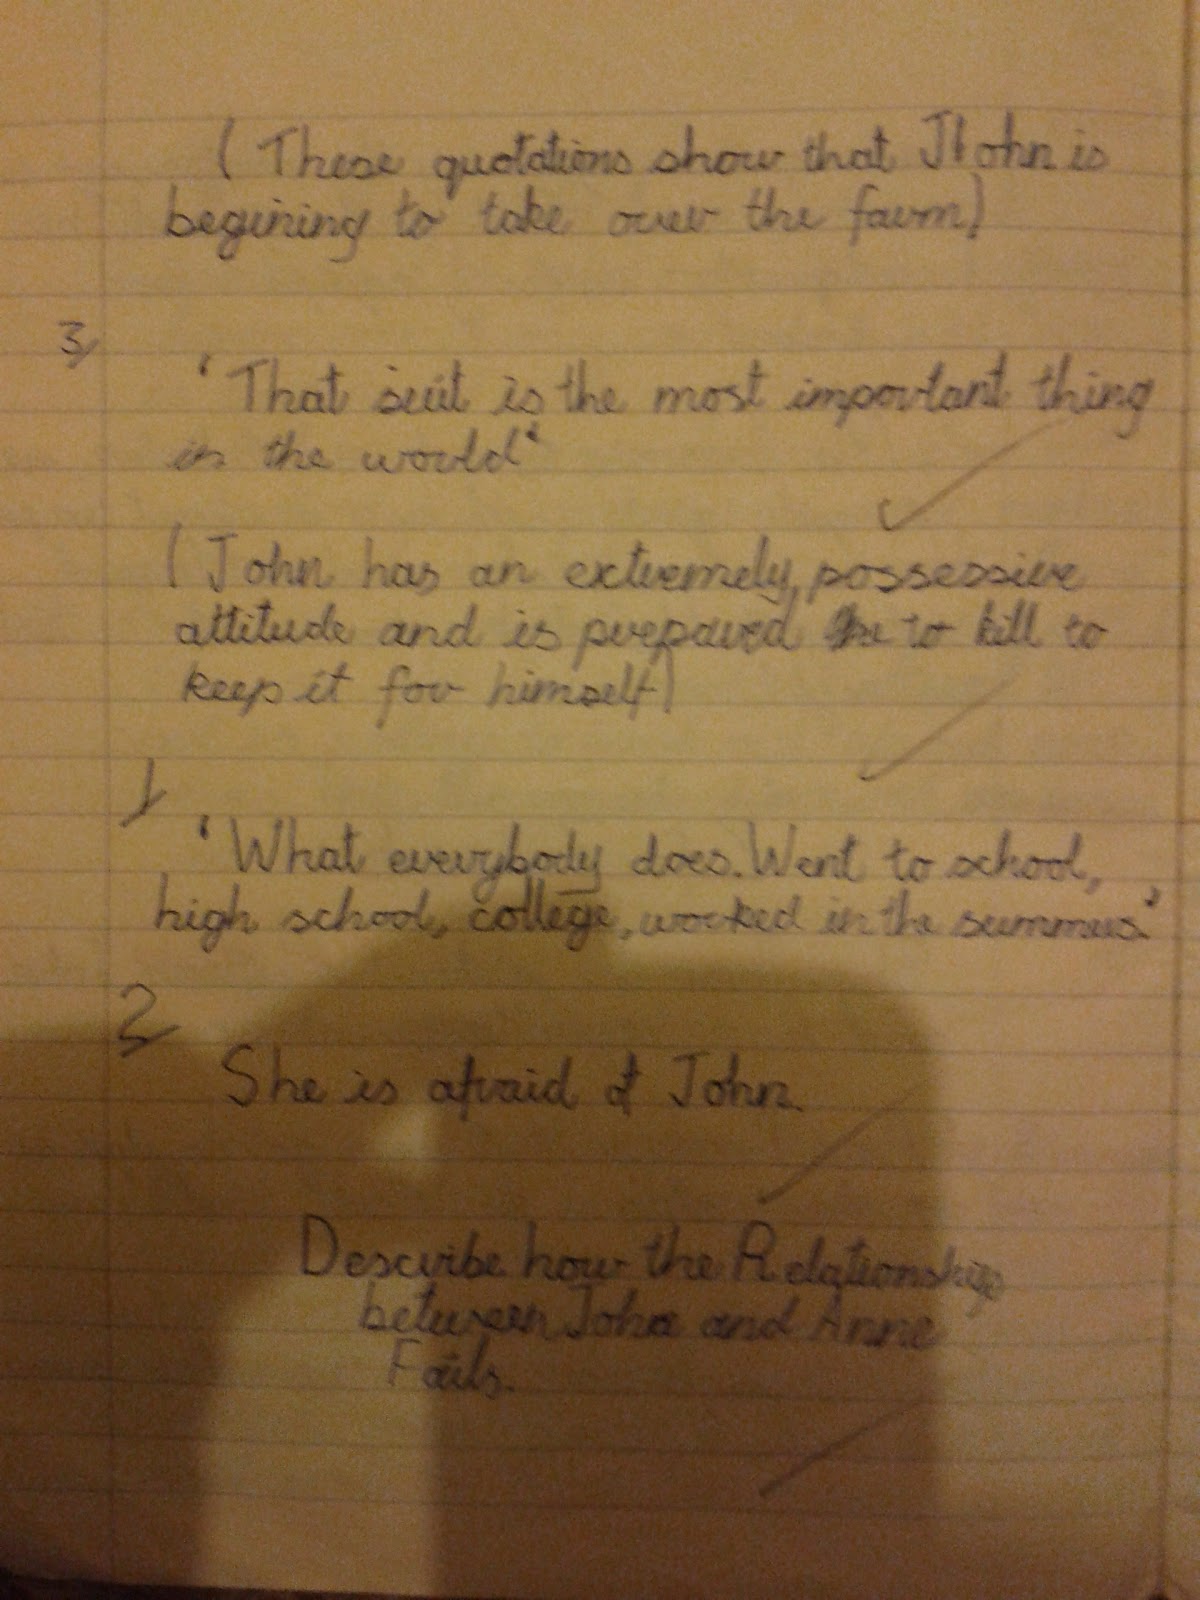 ( These quotations show that John is
begining to take over the farm)
3
'That suit is the most important thing
in the world'
( John has an extremely possessive
attitude and is prepared to kill to
keep it for himself)
1
'What everybody does. Went to school,
high school, college, worked in the summers.'
2
She is afraid of John.
Describe how the Relationship
between John and Anne
Fails.